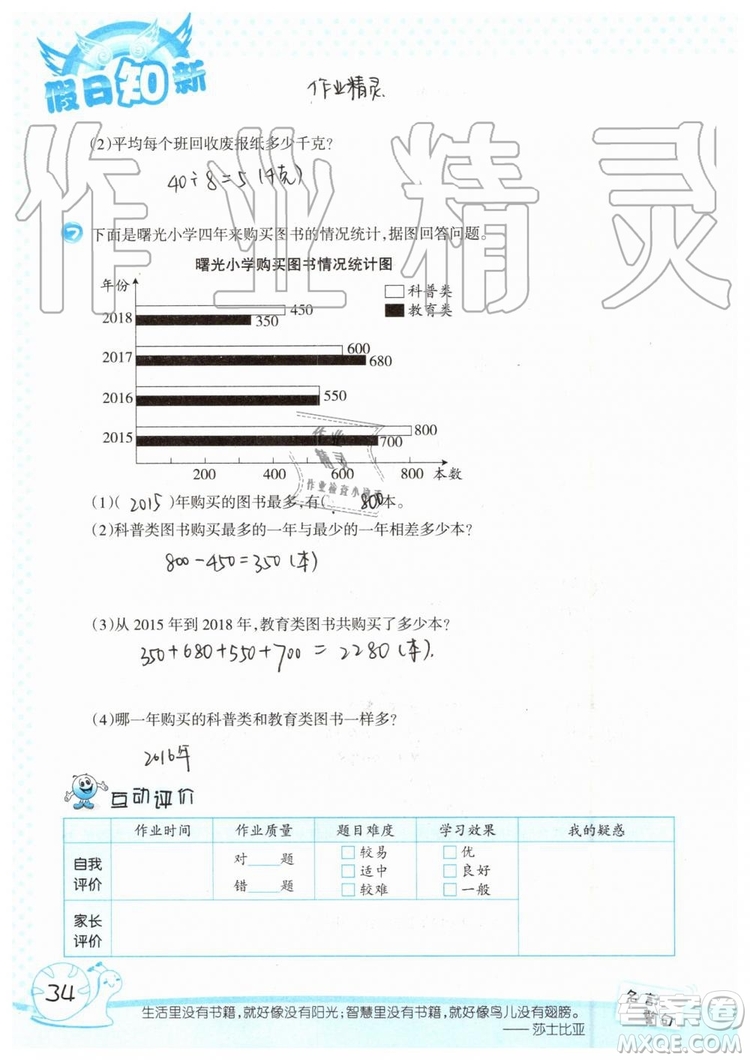 假日知新
作业精灵
(2)平均每个班回收废报纸多少千克?
40÷8=5(千克)
下面是曙光小学四年来购买图书的情况统计,据图回答问题。
曙光小学购买图书情况统计图
年份
科普类
教育类
2018 450
350
2017 600
680
2016 550
2015 800
700
200 400 600 800 本数
作业
精灵
作业检查小
(1)( 2015 )年购买的图书最多,有( 800 本。
(2)科普类图书购买最多的一年与最少的一年相差多少本?
800-450=350(本)
(3)从2015年到2018年,教育类图书共购买了多少本?
350+680+550+700=2280(本).
(4)哪一年购买的科普类和教育类图书一样多?
2016年
互动评价
作业时间 作业质量 题目难度 学习效果 我的疑惑
自我评价 对___题 错___题 □较易 □适中 □较难 □优 □良好 □一般
家长评价
34
生活里没有书籍,就好像没有阳光;智慧里没有书籍,就好像鸟儿没有翅膀。
——莎士比亚
名言
作业精灵
答案圈
MXQE.COM